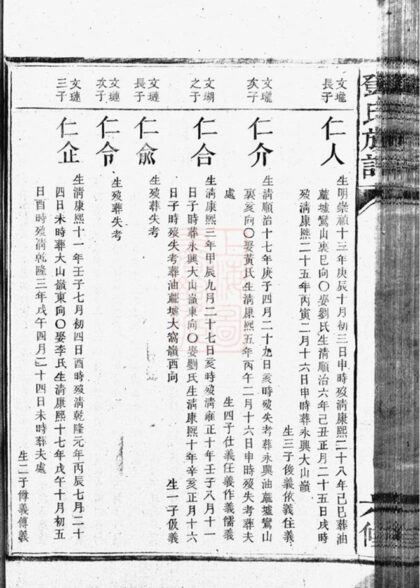 鄧氏族譜
文瓏長子
仁人
生明崇禎十三年庚辰十月初三日申時歿清康熙二十八年己巳葬油
蘆墟鸞山裏巳向〇娶劉氏生清順治六年己丑正月二十五日戌時
歿清康熙二十五年丙寅二月十六日申時葬永興大山嶺
生三子俊義依義任義
文瓏次子
仁介
生清順治十七年庚子四月二十九日亥時歿失考葬永興油蘆墟鸞山
裏亥向〇娶黃氏生清康熙五年丙午二月十六日申時歿失考葬夫
處
生四子仕義任義作義儒義
文瑚之子
仁合
生清康熙三年甲辰九月二十七日亥時歿清雍正十年壬子八月十一
日子時葬永興大山嶺東向〇娶劉氏生清康熙十年辛亥正月十六
日子時歿失考葬油蘆墟大窩嶺酉向
生一子伋義
文璉長子
仁俞
生歿葬失考
文璉次子
仁令
生歿葬失考
文璉三子
仁企
生清康熙十一年壬子七月初四日酉時歿清乾隆元年丙辰七月二十
四日未時葬大山嶺東向〇娶李氏生清康熙十七年戊午十月初五
日酉時歿清乾隆三年戊午四月二十四日未時葬夫處
生二子傳義